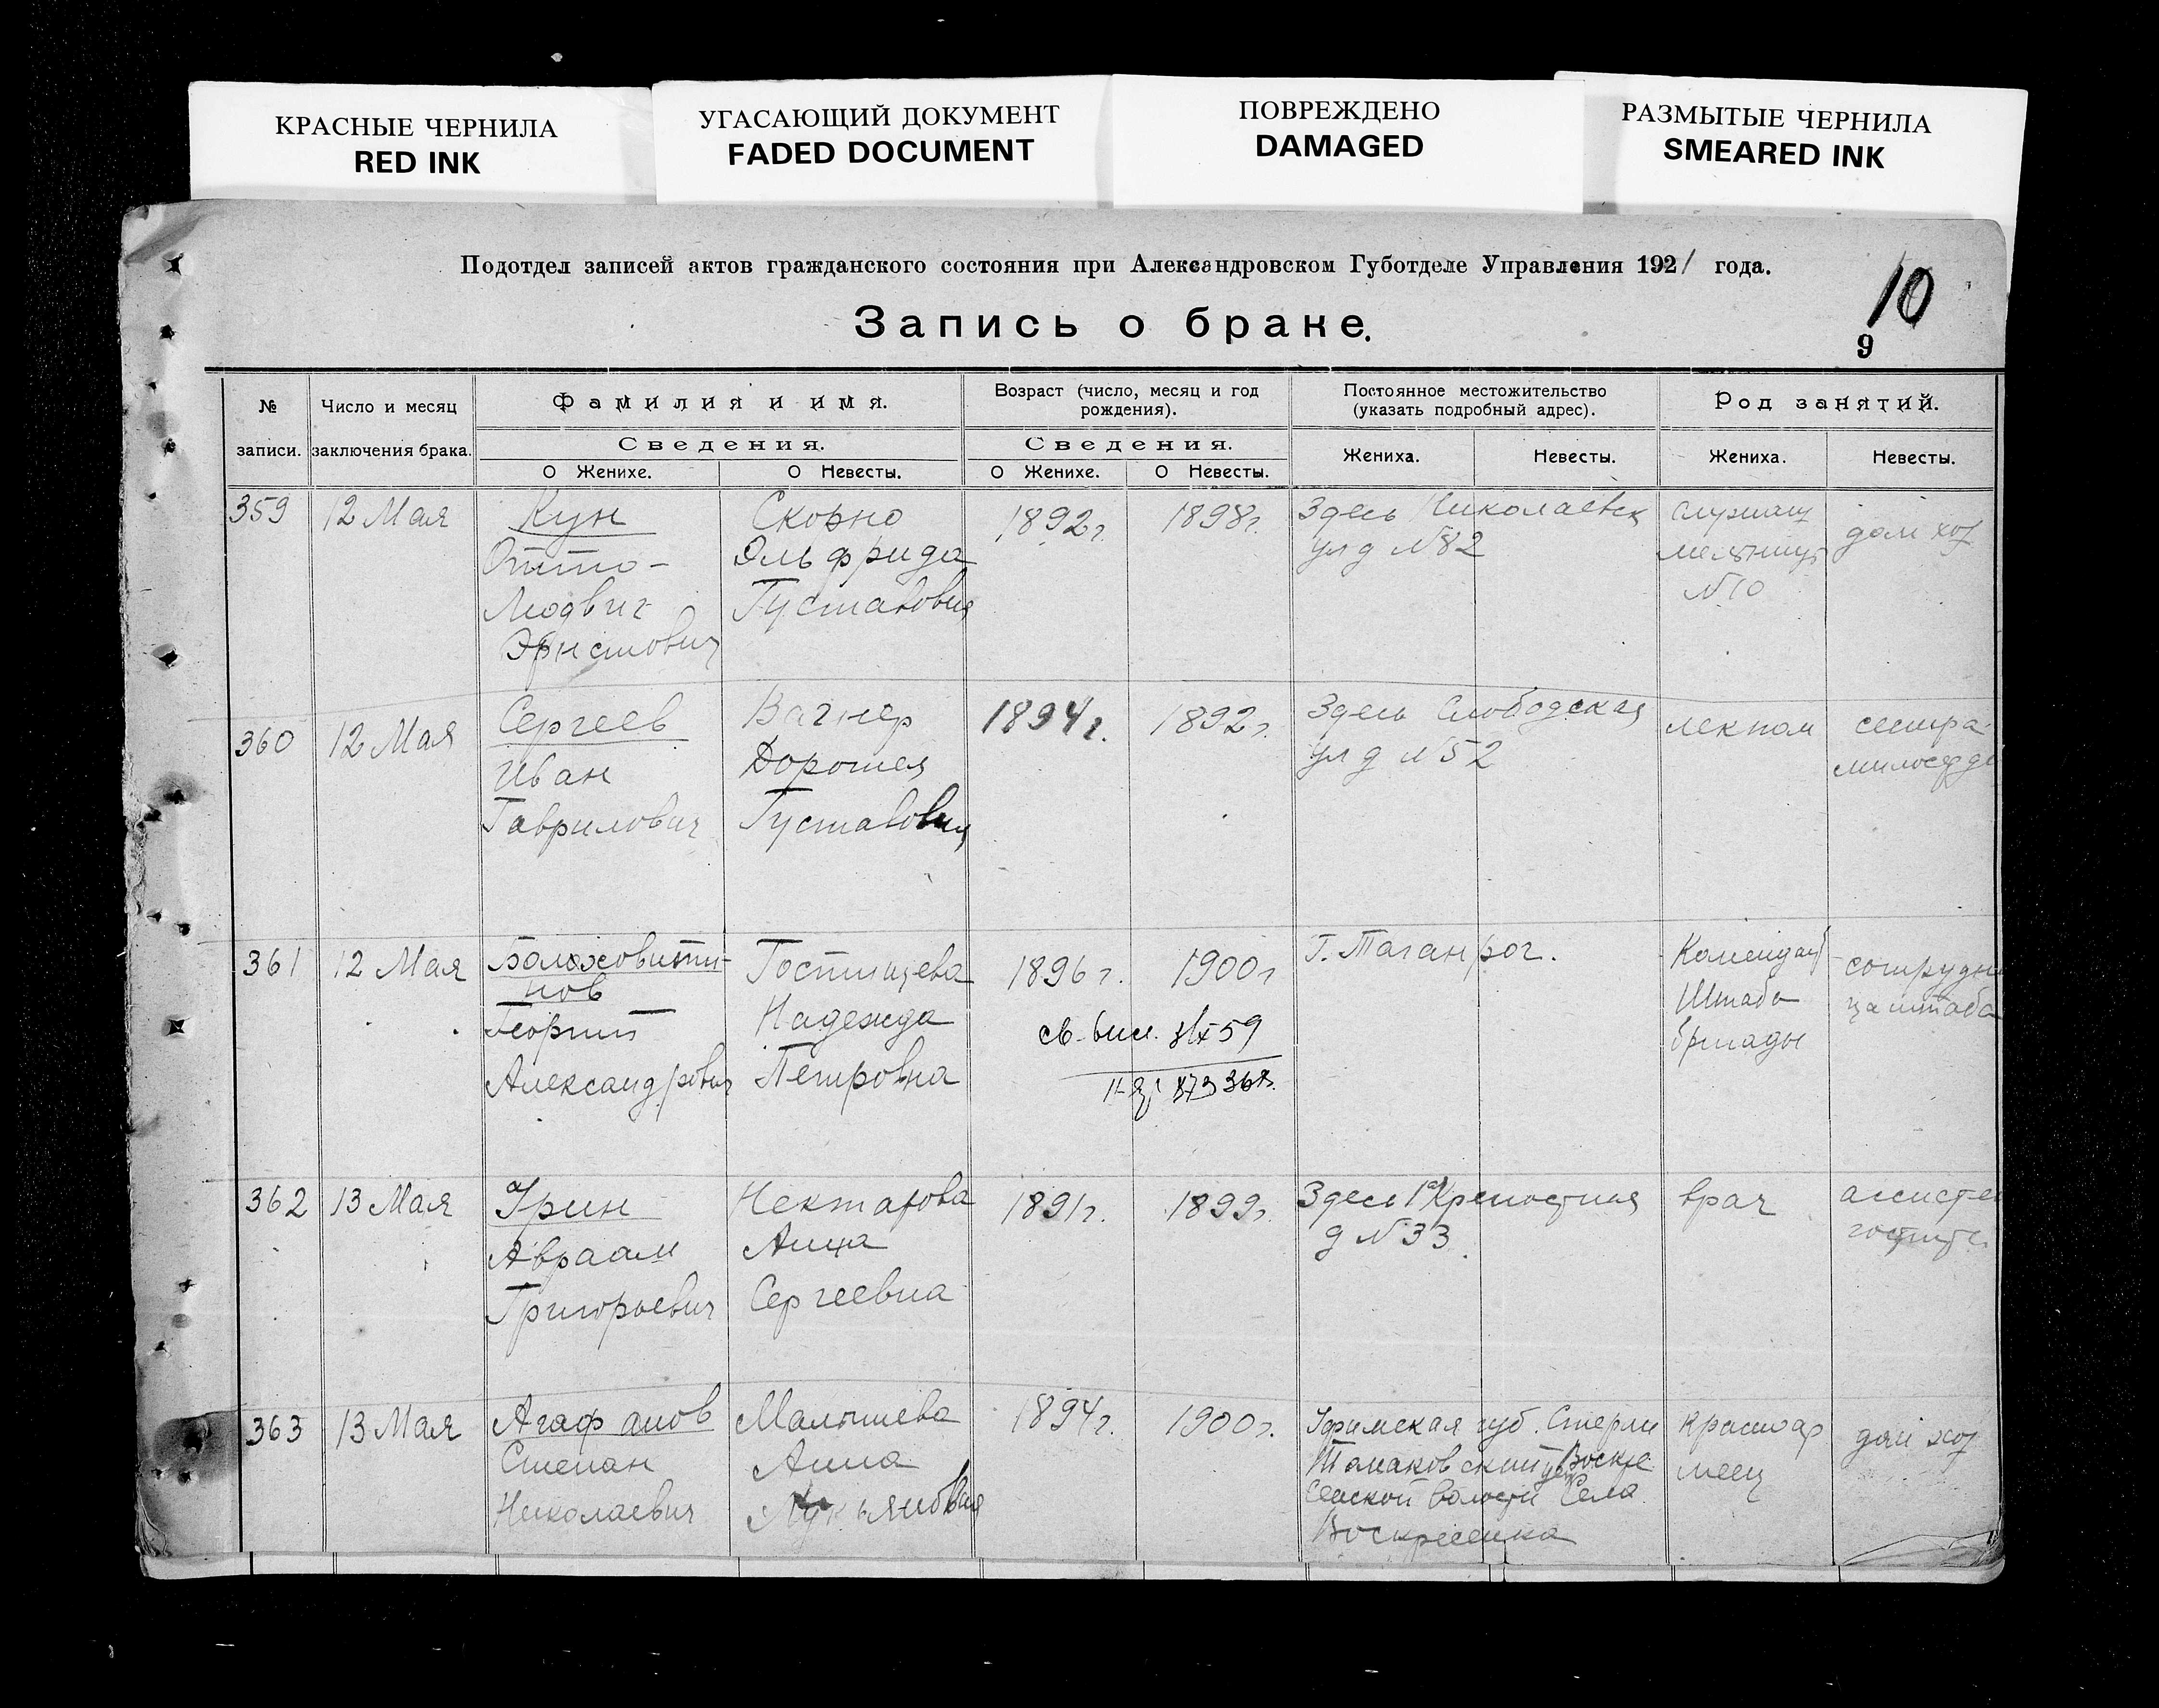 КРАСНЫЕ ЧЕРНИЛА
RED INK
УГАСАЮЩИЙ ДОКУМЕНТ
FADED DOCUMENT
ПОВРЕЖДЕНО
DAMAGED
РАЗМЫТЫЕ ЧЕРНИЛА
SMEARED INK
Подотдел записей актов гражданского состояния при Александровском Губотделе Управления 1921 года.
10
Запись о браке.
9
№ записи.
Число и месяц заключения брака.
Фамилия и имя.
Сведения.
О Женихе.
О Невесты.
Возраст (число, месяц и год рождения).
Сведения.
О Женихе.
О Невесты.
Постоянное местожительство (указать подробный адрес).
Жениха.
Невесты.
Род занятий.
Жениха.
Невесты.
359
12 Мая
Кун
Отто-
Людвиг
Эрнстович
Скорно
Эльфрида
Густавовна
1892г.
1898г.
Здесь Николаевск
ул д №82
служащ
мельницы
№10
дом хоз
360
12 Мая
Сергеев
Иван
Гаврилович
Вагнер
Доротея
Густавовна
1894г.
1892г.
Здесь Слободская
ул д №52
лекпом
сестра
милосерди
361
12 Мая
Болховити-
нов
Георгий
Александрович
Гостищева
Надежда
Петровна
1896г.
1900г
св.
59
Г. Таганрог.
Комендант
Штаба
бригады
сотрудни
ца штаба
362
13 Мая
Грин
Авраам
Григорьевич
Нектарова
Анна
Сергеевна
1891г.
1899г.
Здесь 1я Крепостная
д №33
врач
363
13 Мая
Агафонов
Степан
Николаевич
Малышева
Анна
Лукьяновна
1894г.
1900г.
Уфимская губ. Стерли
Тамаковский уезд Воскре
сенской волости Села
Воскресенка
Красноар
меец
дом хоз